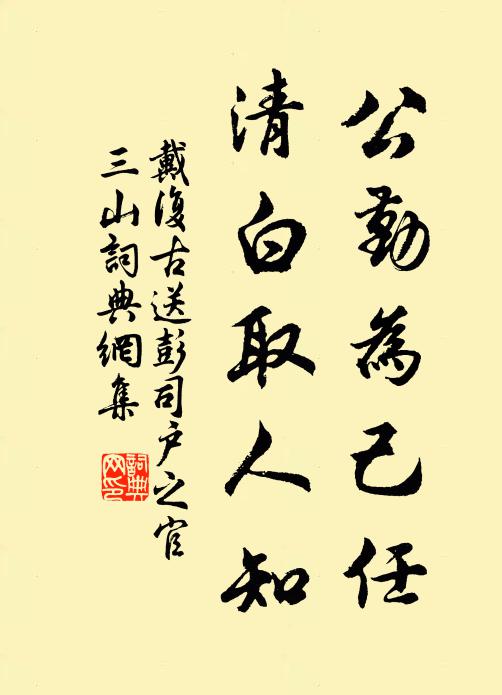 公勤為己任
清白取人知
戴復古送彭司户之官
三山詞典網集
詞典網印